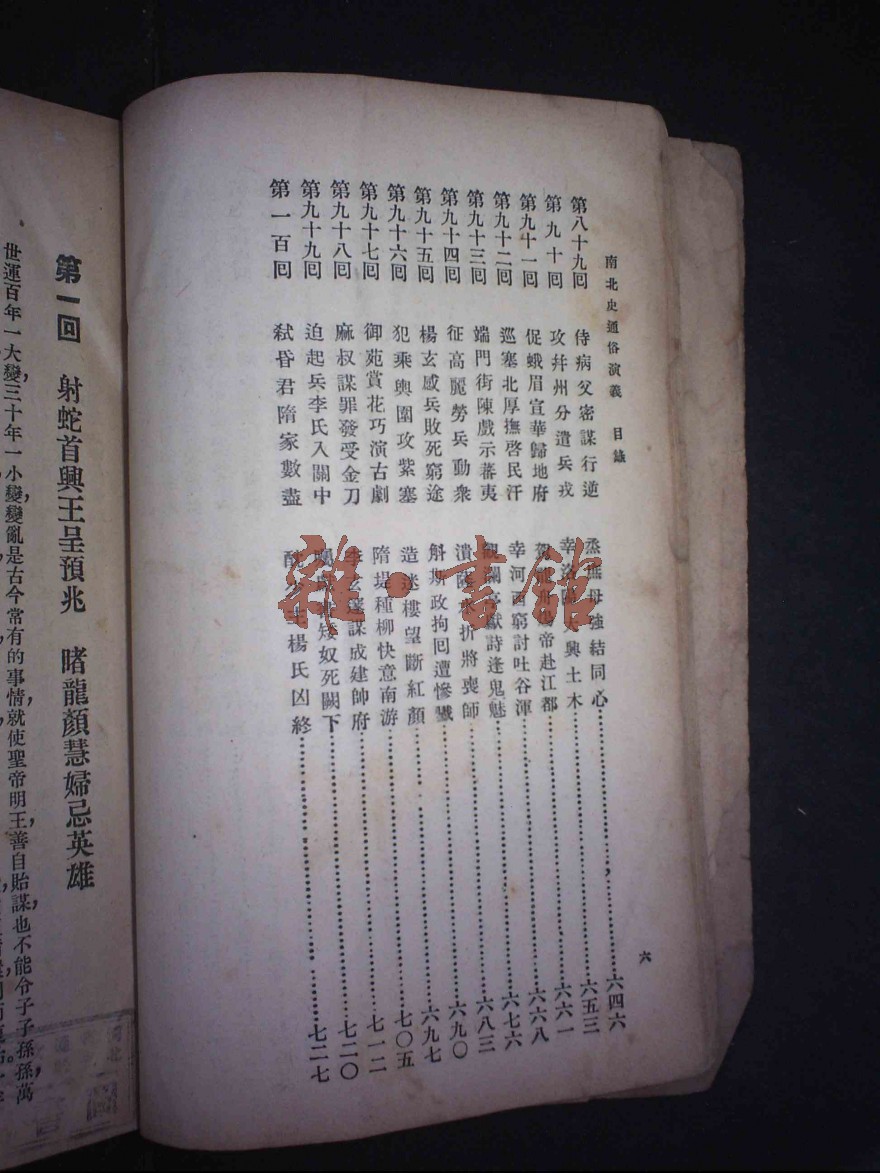 南北史通俗演義 目錄
第八十九回 侍病父密謀行逆 烝庶母強結同心……六四六
第九十回 攻幷州分遣兵戎 幸洛陽大興土木……六五三
第九十一回 促蛾眉宣華歸地府 駕龍舟煬帝赴江都……六六一
第九十二回 巡塞北厚撫啓民汗 幸河西窮討吐谷渾……六六八
第九十三回 端門街陳戲示蕃夷 觀瀾亭獻詩逢鬼魅……六七六
第九十四回 征高麗勞兵動衆 潰薩水折將喪師……六八三
第九十五回 楊玄感兵敗死窮途 斛斯政拘回遭慘戮……六九〇
第九十六回 犯乘輿圍攻紫塞 造迷樓望斷紅顏……六九七
第九十七回 御苑賞花巧演古劇 隋堤種柳快意南游……七〇五
第九十八回 麻叔謀罪發受金刀 李玄邃謀成建帥府……七一二
第九十九回 迫起兵李氏入關中 矮奴死闕下……七二〇
第一百回 弒昏君隋家數盡 酖少主楊氏凶終……七二七
六
雜·書館
第一回 射蛇首興王呈預兆 睹龍顏慧婦忌英雄
世運百年一大變，三十年一小變，變亂是古今常有的事情，就使聖帝明王，善自貽謀，也不能令子子孫孫，萬